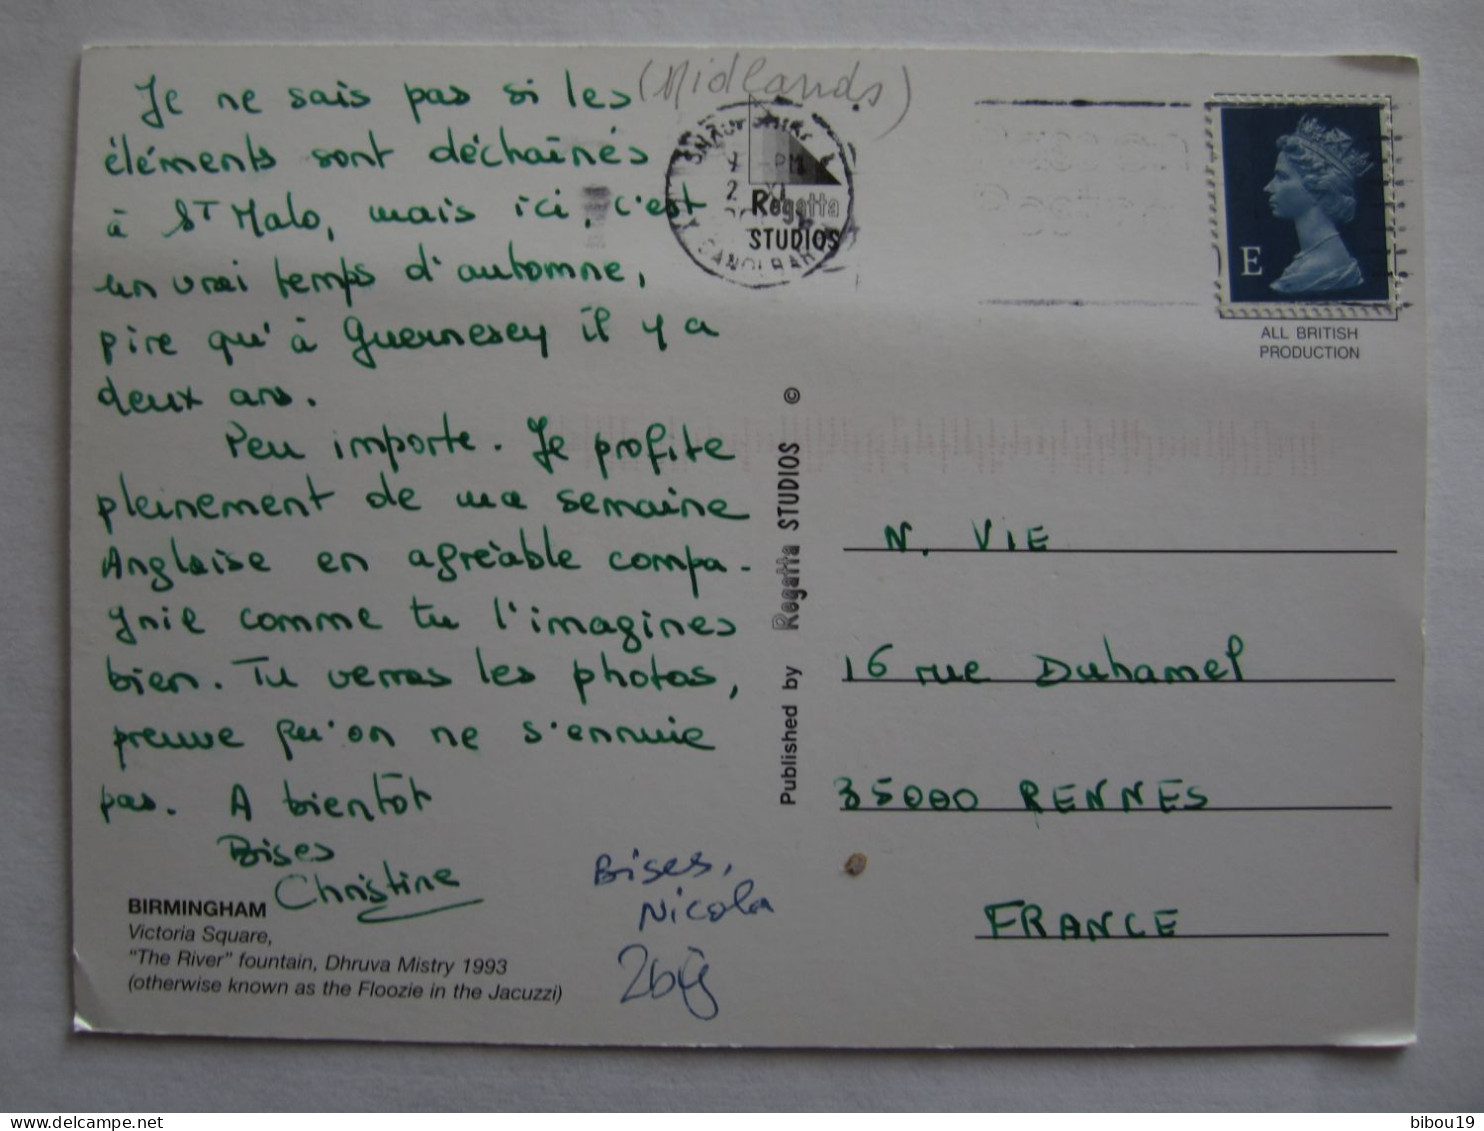 (Midlands)
Je ne sais pas si les
éléments sont déchaînés
à St Malo, mais ici, c'est
un vrai temps d'automne,
pire qu'à Guernesey il y a
deux ans.
Peu importe. Je profite
pleinement de ma semaine
Anglaise en agréable compa-
gnie comme tu l'imagines
bien. Tu verras les photos,
preuve qu'on ne s'ennuie
pas. A bientôt
Bises
Christine
Bises,
Nicola
BIRMINGHAM
Victoria Square,
"The River" fountain, Dhruva Mistry 1993
(otherwise known as the Floozie in the Jacuzzi)
Published by Regatta STUDIOS ©
Regatta
STUDIOS
PM
E
ALL BRITISH
PRODUCTION
N. VIE
16 rue Duhamel
35000 RENNES
FRANCE
bibou19